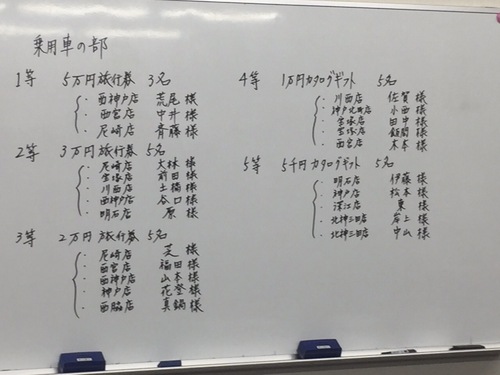 乗用車の部
1等 5万円旅行券 3名
・西神戸店 荒尾様
・西宮店 中井様
・尼崎店 斉藤様
2等 3万円旅行券 5名
・尼崎店 大林様
・宝塚店 前田様
・川西店 土橋様
・西神戸店 谷口様
・明石店 原様
3等 2万円旅行券 5名
・尼崎店 芝様
・西宮店 福田様
・西神戸店 山本様
・神戸店 花登様
・西脇店 真鍋様
4等 1万円カタログギフト 5名
・川西店 佐賀様
・神戸北町店 小西様
・宝塚店 田中様
・宝塚店 飯間様
・西宮店 木本様
5等 5千円カタログギフト 5名
・明石店 伊藤様
・神戸店 松本様
・深江店 東様
・北神三田店 岸上様
・北神三田店 中山様